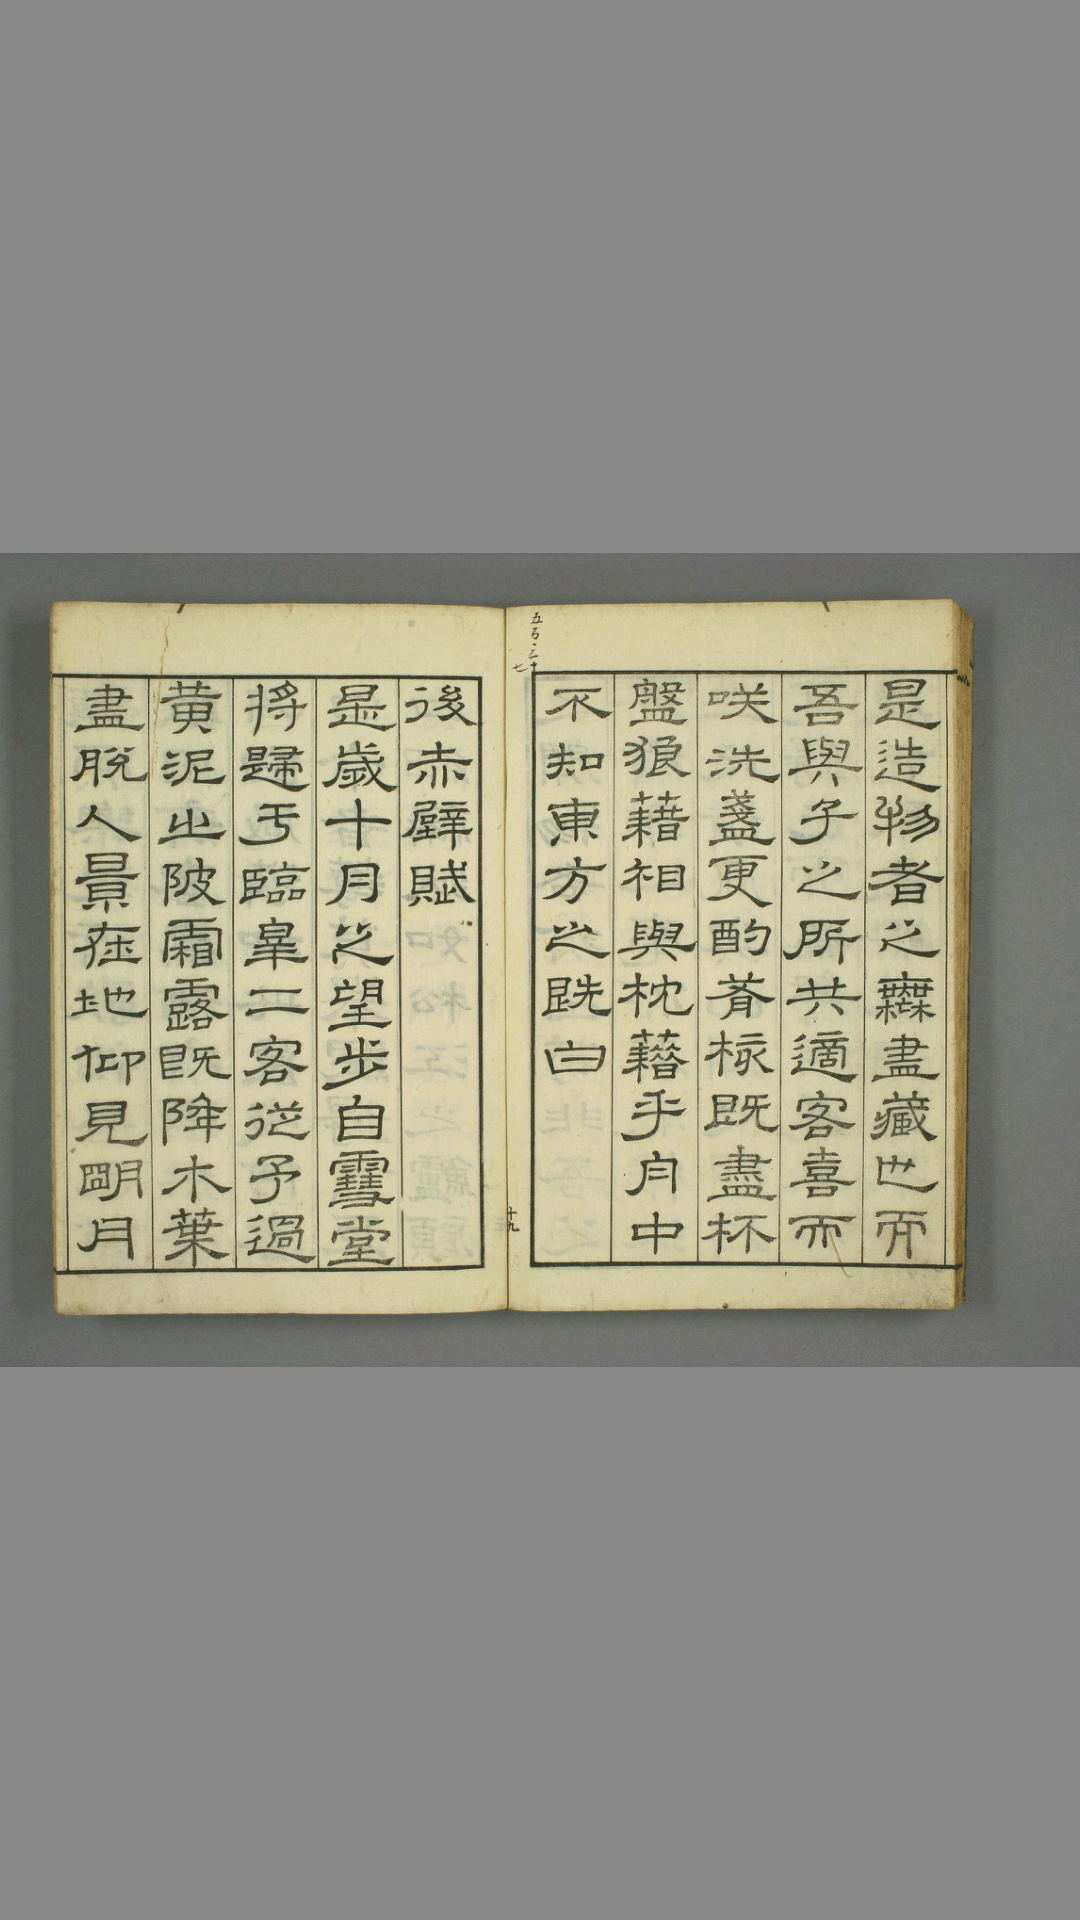 是造物者之無盡藏也而
吾與子之所共適客喜而
咲洗盞更酌肴核既盡杯
盤狼藉相與枕藉乎舟中
不知東方之既白
五百三十七
十九
後赤壁賦
是歲十月之望步自雪堂
將歸于臨皐二客從予過
黃泥之阪霜露既降木葉
盡脫人景在地仰見明月